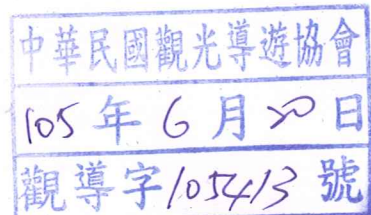 中華民國觀光導遊協會
105 年 6 月 日
觀導字 105413 號